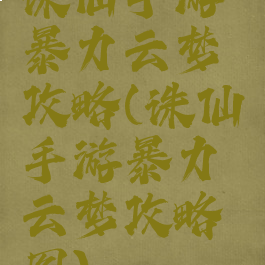 诛仙手游
暴力云梦
攻略(诛仙
手游暴力
云梦攻略
图)